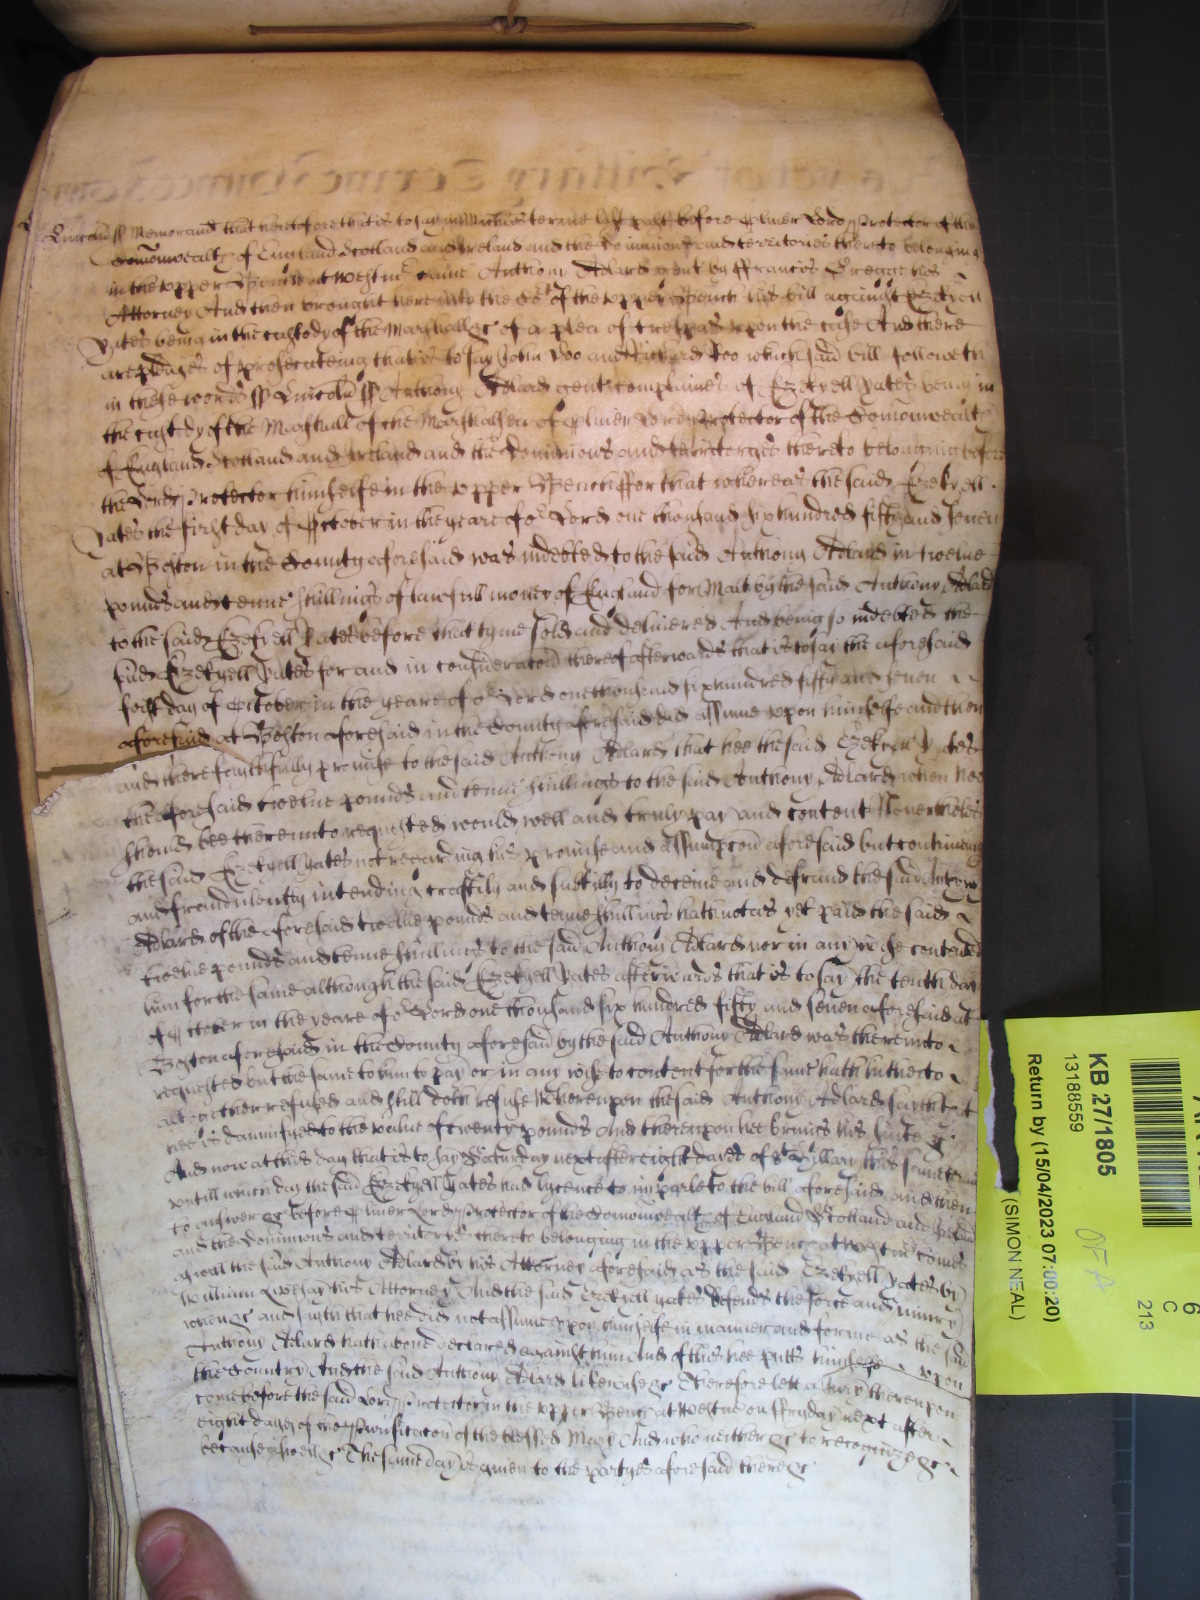 Lincoln ss Memorand that heretofore that is to say in Michas terme last past before Oliver Lord Protector of the
Comonwealth of England Scotland and Ireland and the Dominions and territories thereto belonging
in the upper Bench at Westmr came Anthony Adlard gent by Francis Gregge his
Attorney And then brought here into the Co of the upper Bench his bill against Ezekyell
Yates being in the custody of the Marshall &c of a plea of trespas upon the case And there
are pledges of prosecuteing that is to say John Doo and Richard Roo which said bill followeth
in these words ss Lincoln ss Anthony Adlard gent complaines of Ezekyell Yates being in
the custody of the Marshall of the Marshalsea of Oliver Lord Protector of the Comonwealth
of England Scotland and Ireland and the Dominions and territoryes thereto belonging before
the Lord Protector himselfe in the upper Bench For that whereas the said Ezekyell
Yates the first day of October in the yeare of or Lord one thousand six hundred fifty and seven
at Boston in the County aforesaid was indebted to the said Anthony Adlard in twelve
pounds and tenne shillings of lawfull money of England for Malt by the said Anthony Adlard
to the said Ezekyell Yates before that tyme sold and delivered And being so indebted the
said Ezekyell Yates for and in consideracon thereof afterwards that is to say the aforesaid
first day of October in the yeare of or Lord one thousand six hundred fifty and seven
aforesaid at Boston aforesaid in the County aforesaid did assume upon himselfe and then
and there faythfully promise to the said Anthony Adlard that hee the said Ezekyell Yates
the aforesaid twelve pounds and tenne shillings to the said Anthony Adlard when hee
should bee thereunto requested would well and truly pay and content Nevertheles
the said Ezekyell Yates not regarding his promise and assumpcon aforesaid but contriving
and fraudulently intending craftily and subtilly to deceive and defraud the said Anthony
Adlard of the aforesaid twelve pounds and tenne shillings hath not as yet paid the said
twelve pounds and tenne shillings to the said Anthony Adlard nor in any wise contented
him for the same although the said Ezekyell Yates afterwards that is to say the tenth day
of October in the yeare of or Lord one thousand six hundred fifty and seven aforesaid at
Boston aforesaid in the County aforesaid by the said Anthony Adlard was thereunto
requested but the same to him to pay or in any wise to content for the same hath hitherto
altogether refused and still doth refuse Whereupon the said Anthony Adlard sayth that
hee is damnifyed to the value of twenty pounds And thereupon hee brings his suite &c
And now at this day that is to say Saturday next after eight dayes of St Hyllary this same terme
untill which day the said Ezekyell Yates had lycence to imparle to the bill aforesaid and then
to answer &c before Oliver Lord Protector of the Comonwealth of England Scotland and Ireland
and the Dominions and territoryes thereto belonging in the upper Bench at Westmr comes
aswell the said Anthony Adlard by his Attorney aforesaid as the said Ezekyell Yates by
William his Attorney And the said Ezekyell Yates defends the force and iniury
when &c and sayth that hee did not assume upon himselfe in manner and forme as the said
Anthony Adlard hath above declared against him And of this hee putts himselfe upon
the Country And the said Anthony Adlard likewise &c Therefore lett a Jury thereupon
come before the said Lord Protector in the upper Bench at Westmr on Fryday next after
eight dayes of the Purificacon of the blessed Mary And who neither &c to recognize &c
because aswell &c The same day is given to the partyes aforesaid there &c
KB 27/1805
13188559
Return by (15/04/2023 07:00:20)
(SIMON NEAL)
6
C
213